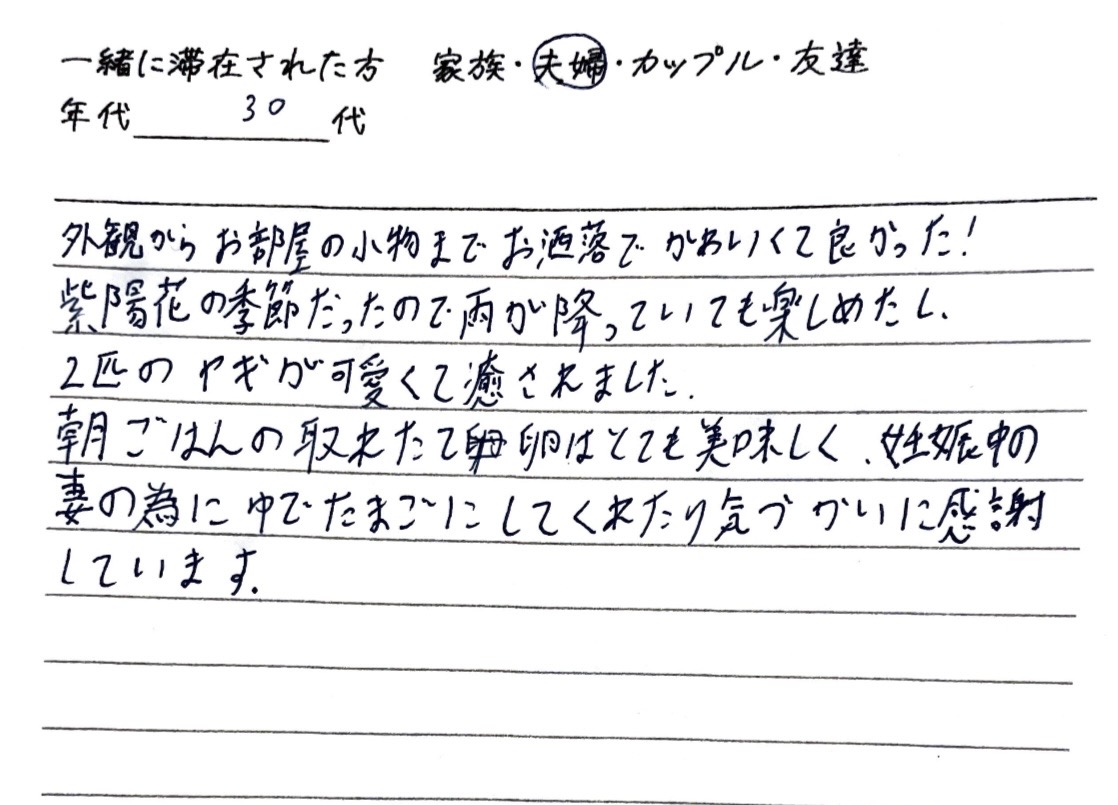 一緒に滞在された方 家族・夫婦・カップル・友達
年代 30 代
外観からお部屋の小物までお洒落でかわいくて良かった!
紫陽花の季節だったので雨が降っていても楽しめたし、
2匹のヤギが可愛くて癒されました。
朝ごはんの取れたて卵はとても美味しく、妊娠中の
妻の為にゆでたまごにしてくれたり気づかいに感謝
しています。